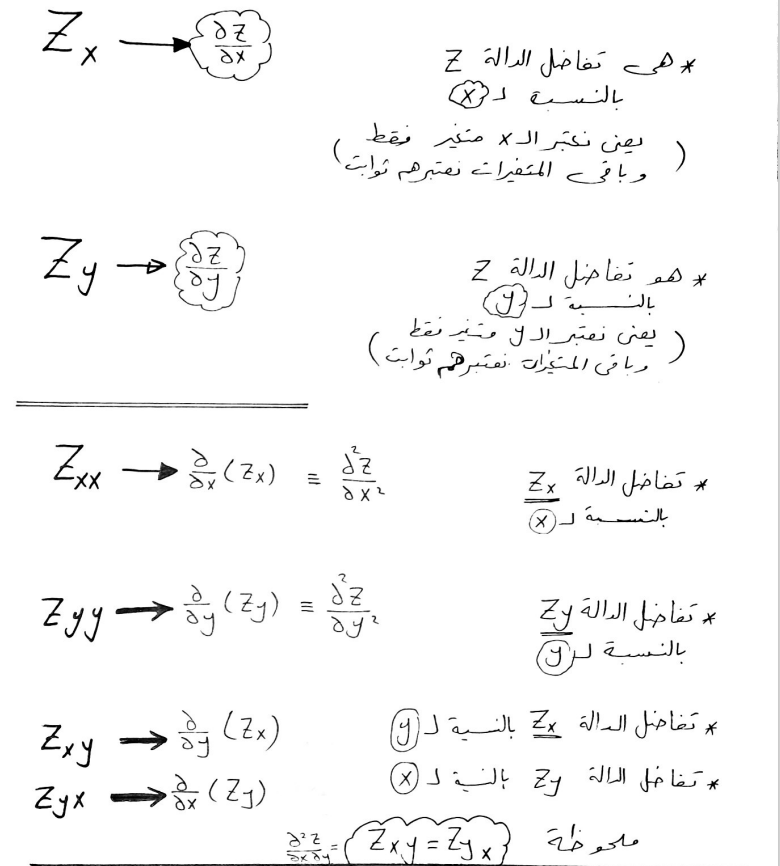 Zx → ∂z/∂x
* هى تفاضل الدالة Z
بالنسبة لـ x
( يعنى نعتبر الـ x متغير فقط
وباقى المتغيرات نعتبرهم ثوابت )
Zy → ∂z/∂y
* هو تفاضل الدالة Z
بالنسبة لـ y
( يعنى نعتبر الـ y متغير فقط
وباقى المتغيرات نعتبرهم ثوابت )
Zxx → ∂/∂x (Zx) ≡ ∂²z/∂x²
* تفاضل الدالة Zx
بالنسبة لـ x
Zyy → ∂/∂y (Zy) ≡ ∂²z/∂y²
* تفاضل الدالة Zy
بالنسبة لـ y
Zxy → ∂/∂y (Zx)
* تفاضل الدالة Zx بالنسبة لـ y
Zyx → ∂/∂x (Zy)
* تفاضل الدالة Zy بالنسبة لـ x
ملحوظة
∂²z/∂x∂y = ( Zxy = Zyx )